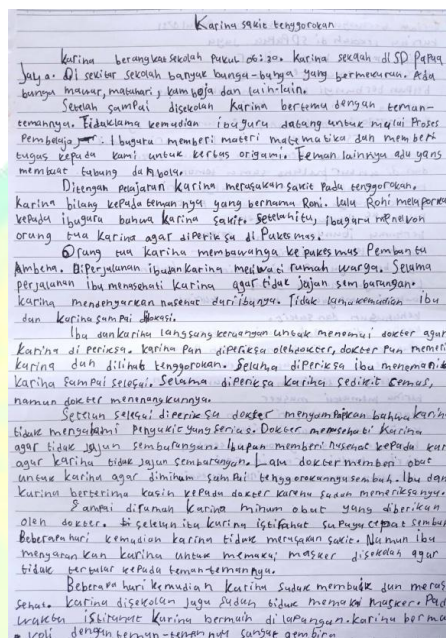 Karina sakit tenggorokan
Karina berangkat sekolah Pukul 06:30. Karina sekolah di SD Papua
Jaya. Di sekitar sekolah banyak bunga-bunga yang bermekaran. Ada
bunga mawar, matahari, kamboja dan lain-lain.
Setelah sampai disekolah Karina bertemu dengan teman-
temannya. Tidak lama kemudian ibu guru datang untuk mulai Proses
Pembelaja. Ibu guru memberi materi matematika dan memberi
tugas kepada kami untuk kertas origami. Teman lainnya ada yang
membuat tabung dan bola.
Ditengah pelajaran Karina merasakan sakit Pada tenggorokan.
Karina bilang kepada teman nya yang bernama Roni. lalu Roni melaporka
kepada ibu guru bahwa Karina sakit. setelah itu, ibu guru menelvon
orang tua Karina agar diperiksa di Pukesmas.
Orang tua Karina membawanya ke pukesmas Pembantu
Ambena. Diperjalanan ibu dan Karina melewati rumah warga. Selama
perjalanan ibu menasehati Karina agar tidak jajan sembarangan.
Karina mendengarkan nasehat dari ibunya. Tidak lama kemudian ibu
dan Karina sampai dilokasi.
Ibu dan Karina langsung keruangan untuk menemui dokter agar
Karina di periksa. Karina Pun diperiksa oleh dokter, dokter pun memeri
Karina dan dilihat tenggorokan. Selama diperiksa ibu menemani k
Karina sampai selesai. Selama diperiksa Karina sedikit cemas,
namun dokter menenangkannya.
Setelah selesai diperiksa dokter menyampaikan bahwa Karin
tidak mengalami Penyakit yang serius. Dokter menasehati Karina
agar tidak jajan sembarangan. Ibu pun memberi nasehat kepada kar
agar Karina tidak jajan sembarangan. Lalu dokter memberi obat
untuk Karina agar diminum sampai tenggorokannya sembuh. Ibu dan
Karina berterima kasih kepada dokter karena sudah memeriksanya.
Sampai dirumah Karina minum obat yang diberikan
oleh dokter. setelah itu Karina istirahat supaya cepat sembu
Beberapa hari kemudian Karina tidak merasakan sakit. Namun ibu
menyarankan Karina untuk memakai masker disekolah agar
tidak tertular kepada teman-temannya.
Beberapa hari kemudian Karina sudah membaik dan meras
sehat. Karina disekolah juga sudah tidak memakai masker. Pad
waktu istirahat Karina bermain di lapangan. Karina berma
voli dengan teman-temannya sangat gembira